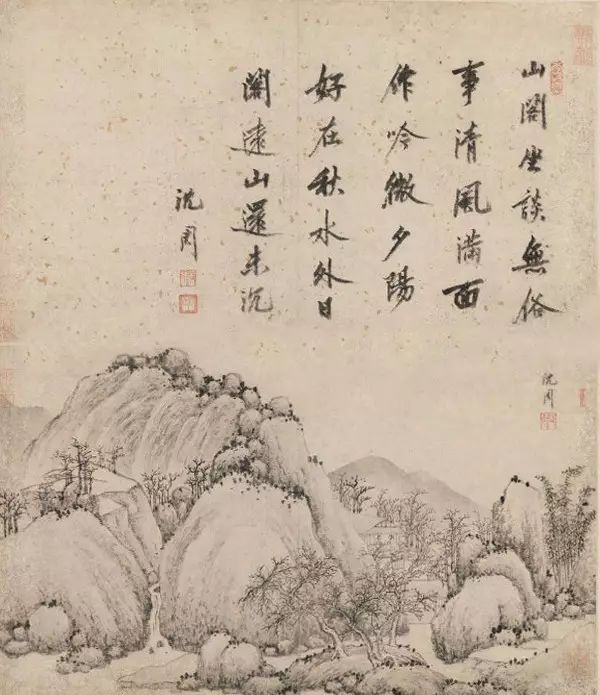 山閣坐談無俗
事清風滿面
作吟微夕陽
好在秋水外日
閣遠山還未沉
沈周
沈周